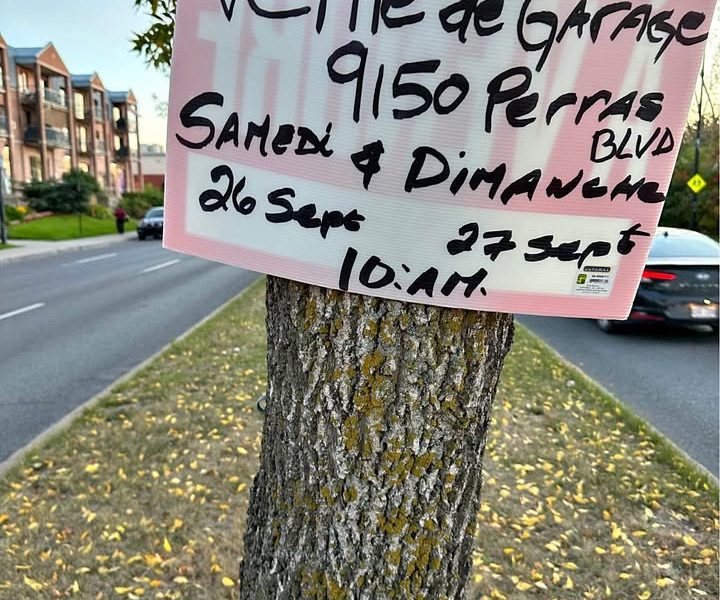 Vente de Garage
9150 Perras
BLVD
Samedi & Dimanche
26 Sept 27 Sept
10:AM.